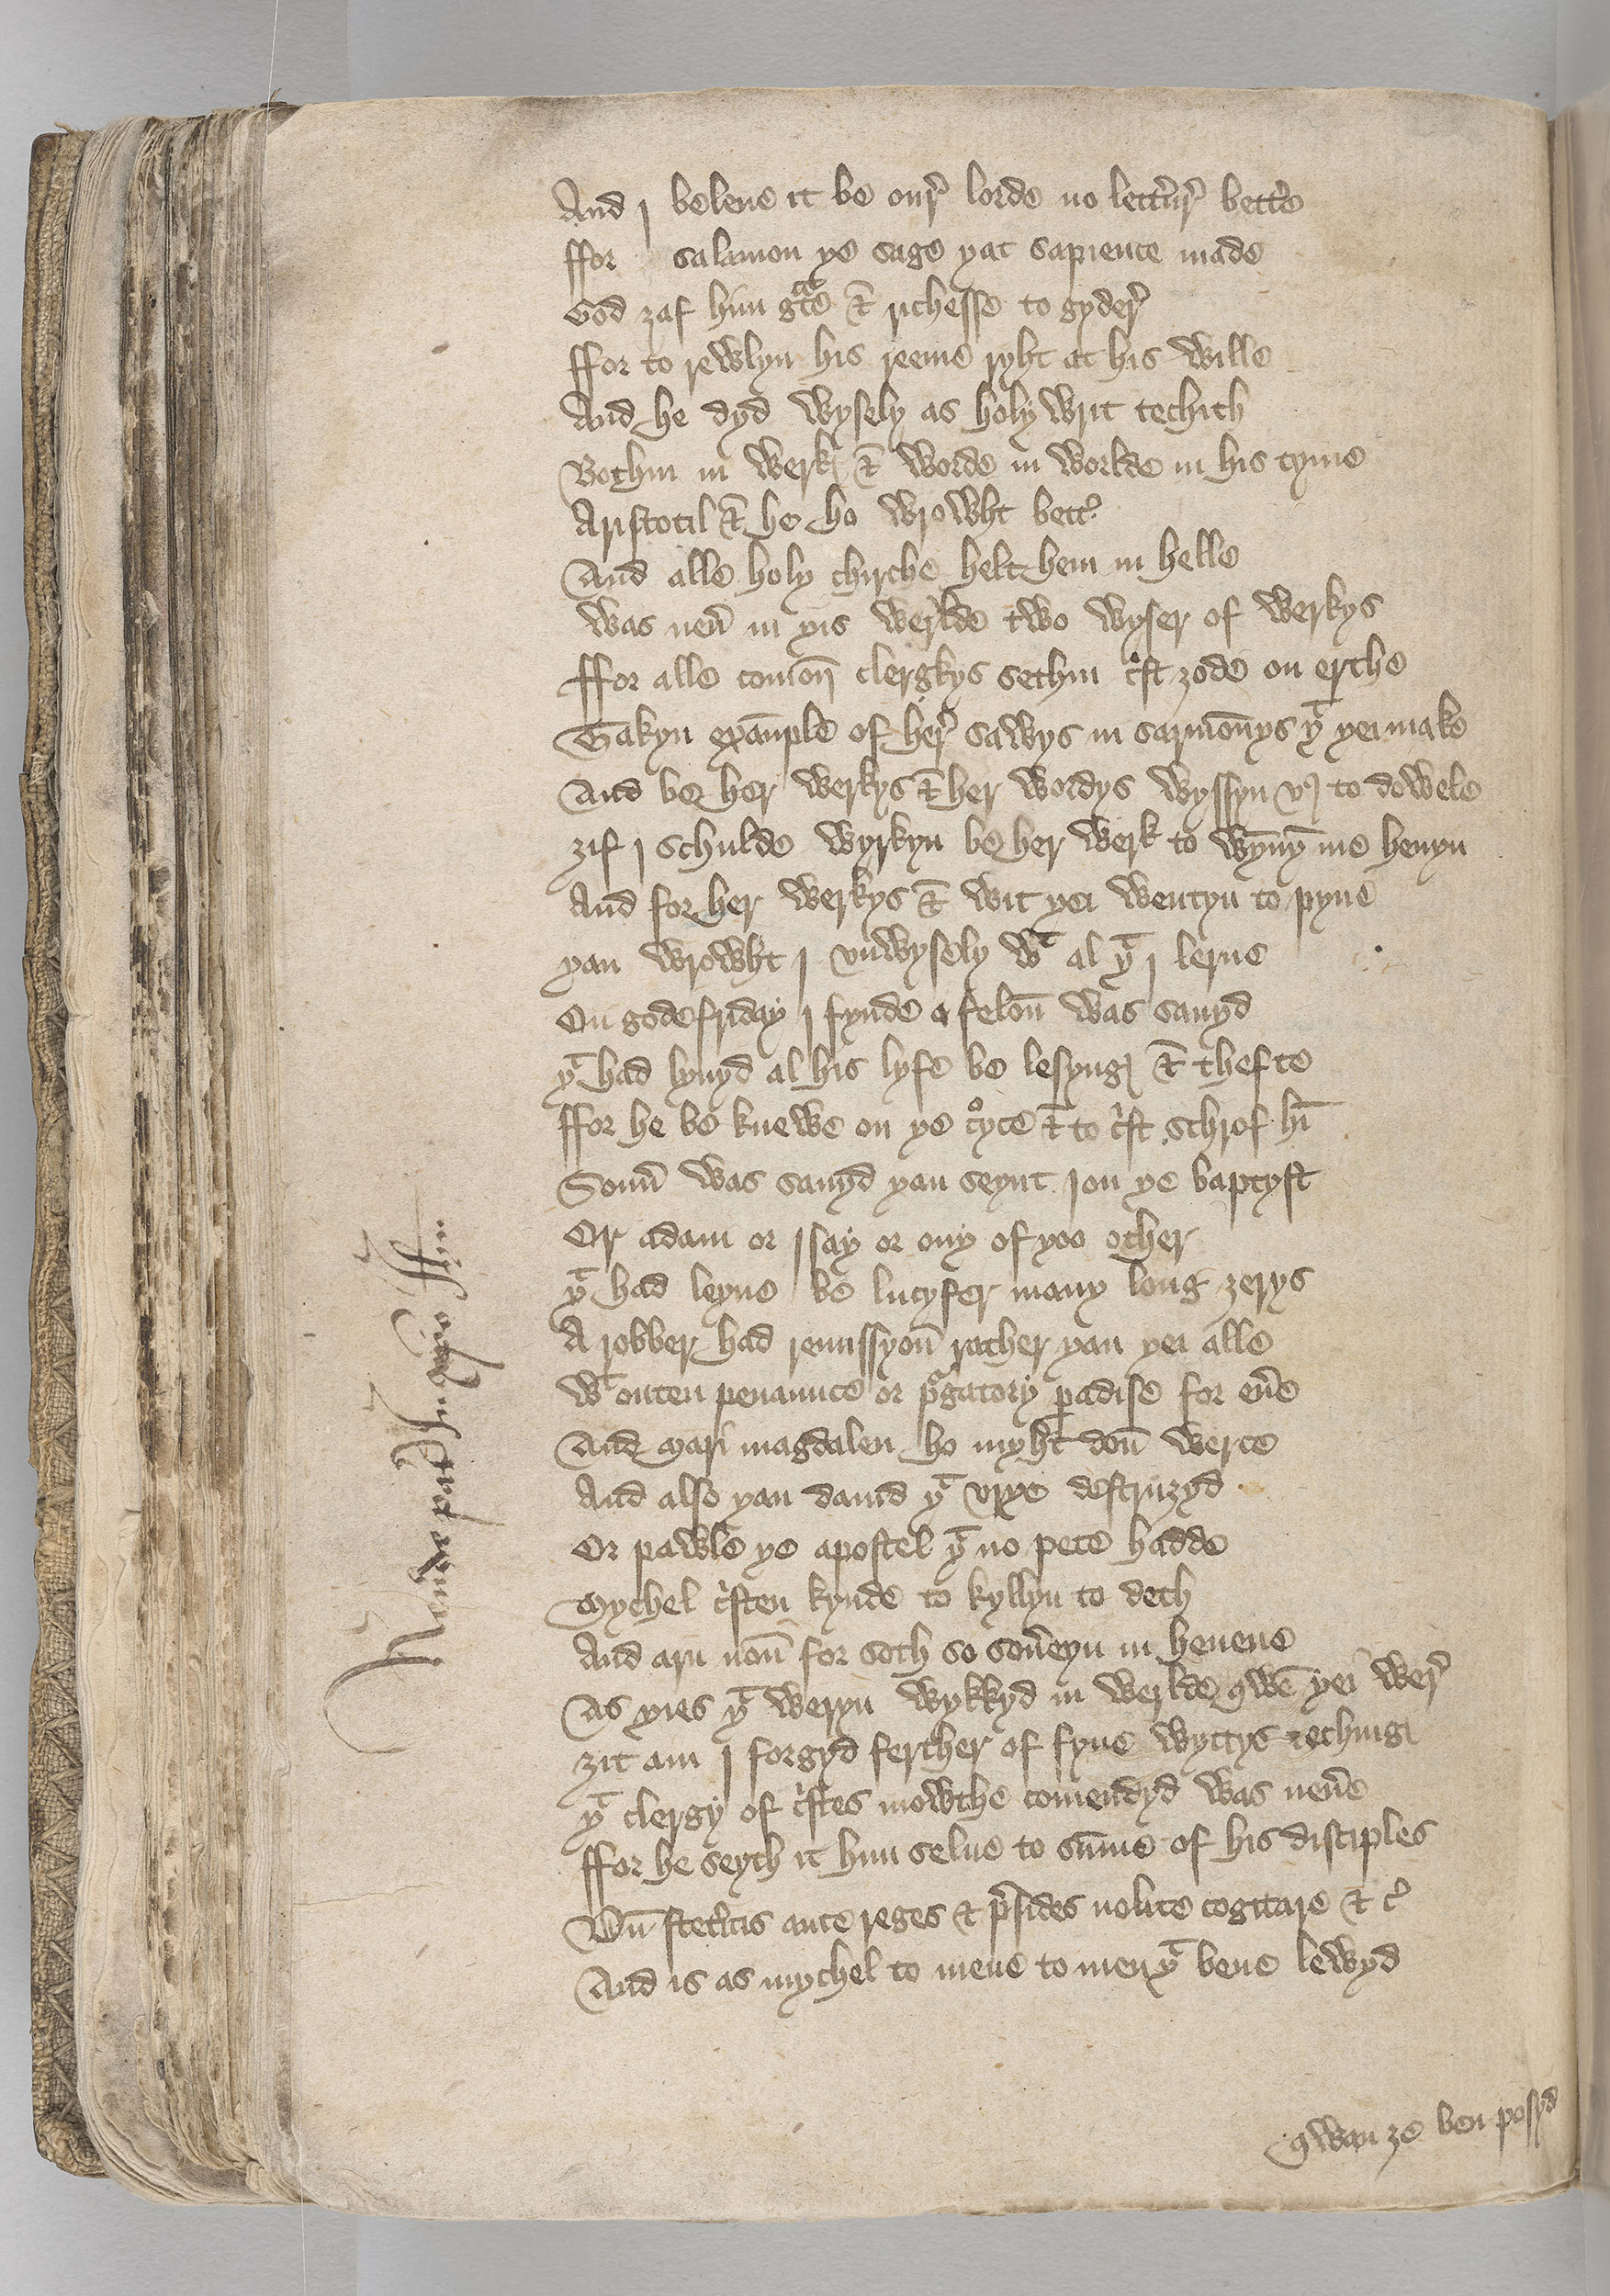 And I beleue it be our̉ lorde no lettrur̉ bettr̉e
ffor salamon ye sage yat sapience made
God ȝaf him gᵃce & richesse to gyder̉
ffor to rewlyn his reeme ryht at his wille
And he dyd wysely as holy writ techith
Bothin in werkꝭ & worde in worlde in his tyme
Aristotil & he ho wrowht bett̉
And alle holy chirche helt hem in helle
was neũ in yis werlde two wyser of werkys
ffor alle comon̄ clergkys sethin c̉st ȝode on erthe
Takyn exāmple of her̉ sawys in sarmōnys yͭ yei make
And be her werkys & her wordys wyssyn vs to dowele
ȝif I schulde wyrkyn be her werk to wȳnȳ me heuyn
And for her werkys & wit yei wentyn to pyne
yan wrowht I vnwysely wͭ al yͭ I lerne
On gode friday I fynde a felon̄ was sauyd
yͭ had lyuyd al his lyfe be lesyngꝭ & thefte
ffor he be knewe on ye cͦyce & to c̉st schrof hī
Sonn̉ was sauyd yan seynt Ion ye baptyst
Or adam or Isay or ony of yoo other
yͭ had leyne be lucyfer many long ȝerys
A robber had remissyon̄ rather yan yei alle
wͭ outen penaunce or p̉gatory ꝑadise for eũe
And mari magdalen ho myht don̄ werce
And also yan dauid yͭ vrye destruȝyd
Or pawle ye apostel yͭ no pete hadde
Mychel c̉sten kynde to kyllyn to deth
And arn non̄ for soth so soũeyn in heuene
As yies yͭ weryn wykkyd in werlde qwē yei wer̉
ȝit am I forgyd ferther of fyue wyttys techingꝭ
yͭ clergy of c̉stes mowthe comendyd was neũe
ffor he seyth it him selue to sūme of his disciples
Dū stet̉itis ante reges & p̉sides nolite cogitare & c̉
And is as mychel to mene to men yͭ bene lewyd
qwan ȝe ben posyd